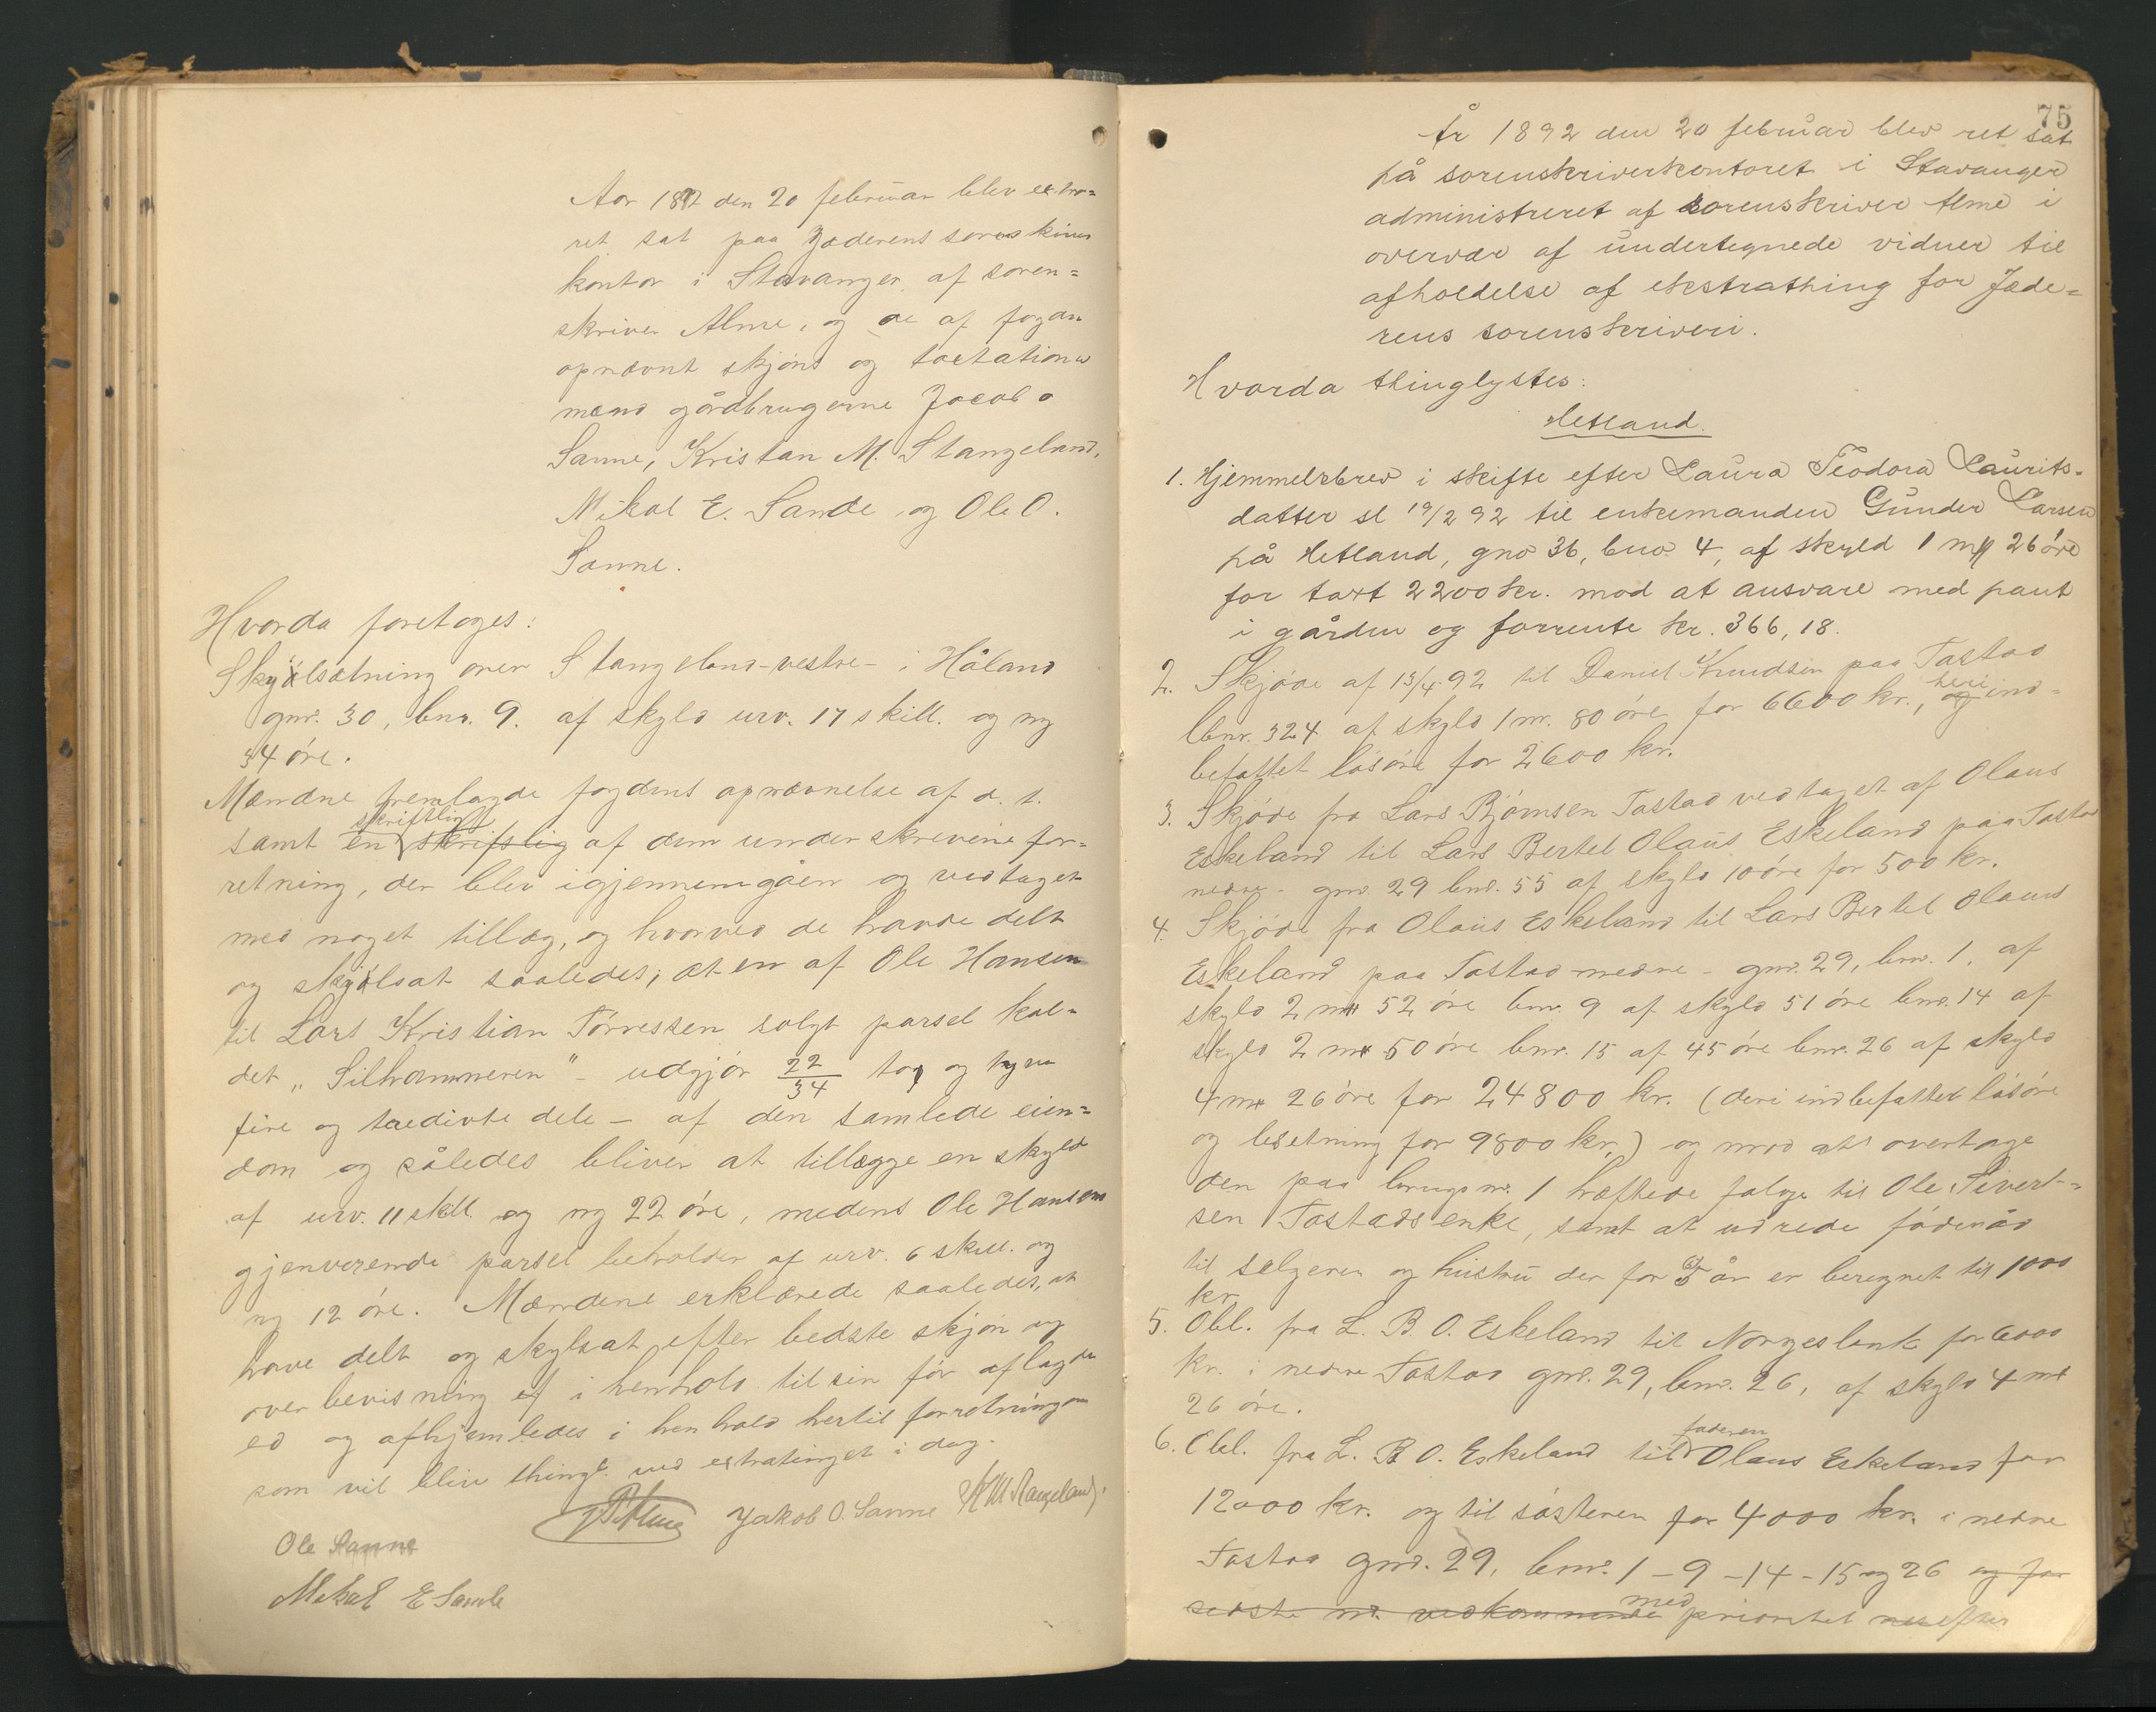 Aar 1892 den 20 februar blev extra=
ret sat paa Jæderens sorenskriver
kontor i Stavanger af soren=
skriver Alme, og de af fogden
opnævnt skjøns og taxtations
mænd gårdbrugerne Jacob O
Sanne, Kristan M. Stangeland,
Mikal E. Sande og Ole O.
Sanne.
Hvorda foretages:
Skyldsætning over Stangeland-vestre- i Håland
gnr. 30, bnr. 9. af skyld urv. 17 skill. og ny
34 öre.
Mændne fremlagde fogdens opnævnelse af d. t.
samt en skriftlig skrifslig af dem underskrevene for=
retning, der blev igjennemgåen og vedtaget
med noget tillæg, og hvorved de havde delt
og skyldsat saaledes, at en af Ole Hansen
til Lars Kristian Tørressen solgt parsel kal=
det „Silhammeren" - udgjör 22/34 to og tyve
fire og tredivte dele - af den samlede eien=
dom og således bliver at tillægge en skyld
af urv. 11 skill. og ny 22 öre, medens Ole Hansens
gjenverende parsel beholder af urv. 6 skill. og
ny 12 öre. Mændene erklærede saaledes, at
have delt og skylsat efter bedste skjøn og
overbevisning ef i henhold til sin för aflagde
ed og afhjemledes i henhold hertil forretningen
som vil blive thingl. ved extratinget i dag.
Jakob O. Sanne K M Stangeland
Ole Sanne
Mikal E Sande
75
År 1892 den 20 februar blev ret sat
på sorenskriverkontoret i Stavanger
administreret af sorenskriver Alme i
overvær af undertegnede vidner til
afholdelse af ekstrathing for Jæde=
rens sorenskriveri.
Hvorda thinglystes:
Hetland.
1. Hjemmelsbrev i skifte efter Laura Teodora Laurits-
datter sl 19/2 92 til enkemanden Gunder Larsen
på Hetland, gno 36, bno 4, af skyld 1 mk 26 öre
for taxt 2200 kr. mod at ansvare med pant
i gården og forrente kr. 366,18.
2. Skjöde af 13/4 92 til Daniel Knudsen paa Tastad
lbnr. 324 af skyld 1 m. 80 öre for 6600 kr., og heri ind-
befattet lösöre for 2600 kr.
3. Skjöde fra Lars Bjørnsen Tastad vedtaget af Olaus
Eskeland til Lars Bertel Olaus Eskeland paa Tastad
nedre - gnr. 29 bnr. 55 af skyld 10 öre for 500 kr.
4. Skjöde fra Olaus Eskeland til Lars Bertel Olaus
Eskeland paa Tastad nedre - gnr. 29, bnr. 1. af
skyld 2 mk 52 öre bnr. 9 af skyld 51 öre bnr. 14 af
skyld 2 mk 50 öre bnr. 15 af 45 öre bnr. 26 af skyld
4 mk 26 öre for 24800 kr. (deri indbefattet lösöre
og besetning for 9800 kr.) og mod at overtage
den paa brugsnr. 1 hæftede folge til Ole Sivert-
sen Tastads enke, samt at udrede föderåd
til selgeren og hustru der for 5 år er beregnet til 1000
kr.
5. Obl. fra L. B. O. Eskeland til Norges bank for 6000
kr. i nedre Tastad gnr. 29, bnr. 26, af skyld 4 mk
26 öre.
6. Obl. fra L. B O. Eskeland til faderen Olaus Eskeland for
12000 kr. og til søsteren for 4000 kr. i nedre
Tastad gnr. 29, bnr. 1 - 9 - 14 - 15 og 26 og for
sedste nr. vedkommende med prioritet nes efter